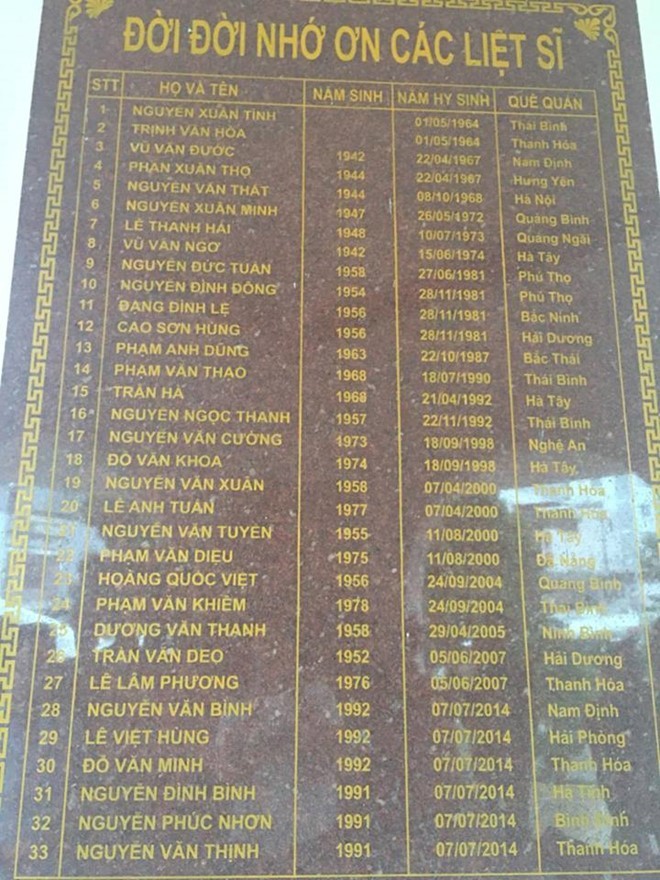 ĐỜI ĐỜI NHỚ ƠN CÁC LIỆT SĨ
STT HỌ VÀ TÊN NĂM SINH NĂM HY SINH QUÊ QUÁN
1 NGUYỄN XUÂN TÌNH 01/05/1964 Thái Bình
2 TRỊNH VĂN HÓA 01/05/1964 Thanh Hóa
3 VŨ VĂN ĐƯỚC 1942 22/04/1967 Nam Định
4 PHAN XUÂN THỌ 1944 22/04/1967 Hưng Yên
5 NGUYỄN VĂN THẤT 1944 08/10/1968 Hà Nội
6 NGUYỄN XUÂN MINH 1947 26/05/1972 Quảng Bình
7 LÊ THANH HẢI 1948 10/07/1973 Quảng Ngãi
8 VŨ VĂN NGƠ 1942 15/06/1974 Hà Tây
9 NGUYỄN ĐỨC TUẤN 1958 27/06/1981 Phú Thọ
10 NGUYỄN ĐÌNH ĐÔNG 1954 28/11/1981 Phú Thọ
11 ĐẶNG ĐÌNH LỆ 1956 28/11/1981 Bắc Ninh
12 CAO SƠN HÙNG 1956 28/11/1981 Hải Dương
13 PHẠM ANH DŨNG 1963 22/10/1987 Bắc Thái
14 PHẠM VĂN THẠO 1968 18/07/1990 Thái Bình
15 TRẦN HÀ 1968 21/04/1992 Hà Tây
16 NGUYỄN NGỌC THANH 1957 22/11/1992 Thái Bình
17 NGUYỄN VĂN CƯỜNG 1973 18/09/1998 Nghệ An
18 ĐỖ VĂN KHOA 1974 18/09/1998 Hà Tây
19 NGUYỄN VĂN XUÂN 1958 07/04/2000 Thanh Hóa
20 LÊ ANH TUẤN 1977 07/04/2000 Thanh Hóa
21 NGUYỄN VĂN TUYẾN 1955 11/08/2000 Hà Tây
22 PHẠM VĂN DIỆU 1975 11/08/2000 Đà Nẵng
23 HOÀNG QUỐC VIỆT 1956 24/09/2004 Quảng Bình
24 PHẠM VĂN KHIÊM 1978 24/09/2004 Thái Bình
25 DƯƠNG VĂN THANH 1958 29/04/2005 Ninh Bình
26 TRẦN VĂN DEO 1952 05/06/2007 Hải Dương
27 LÊ LÂM PHƯƠNG 1976 05/06/2007 Thanh Hóa
28 NGUYỄN VĂN BÌNH 1992 07/07/2014 Nam Định
29 LÊ VIỆT HÙNG 1992 07/07/2014 Hải Phòng
30 ĐỖ VĂN MINH 1992 07/07/2014 Thanh Hóa
31 NGUYỄN ĐÌNH BÌNH 1991 07/07/2014 Hà Tĩnh
32 NGUYỄN PHÚC NHƠN 1991 07/07/2014 Bình Định
33 NGUYỄN VĂN THỊNH 1991 07/07/2014 Thanh Hóa